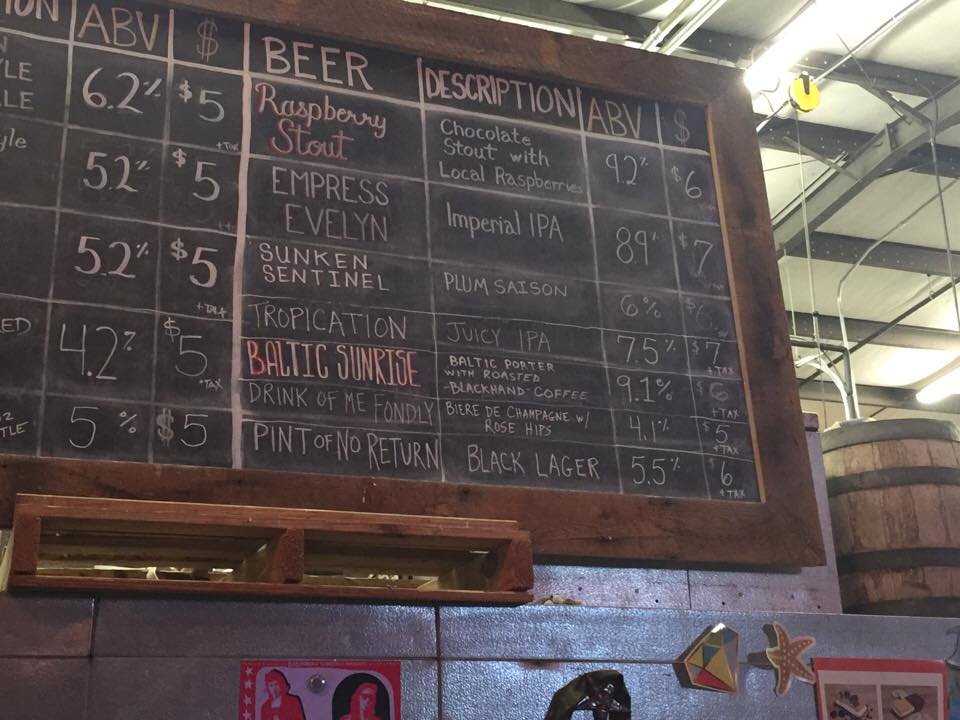 ION ABV $
YLE
LLE 6.2% $5 +TAX
yle 5.2% $5
5.2% $5 +TAX
ED 4.2% $5 +TAX
TLE 5% $5
BEER DESCRIPTION ABV $
Raspberry
Stout
Chocolate
Stout with
Local Raspberries
9.2% $6
EMPRESS
EVELYN
Imperial IPA
8.9% $7
SUNKEN
SENTINEL
PLUM SAISON
6% $6
TROPICATION JUICY IPA 7.5% $7 +TAX
BALTIC SUNRISE
BALTIC PORTER
WITH ROASTED
-BLACKHAND-COFFEE
9.1% $6 +TAX
DRINK OF ME FONDLY
BIERE DE CHAMPAGNE W/
ROSE HIPS
4.1% $5 +TAX
PINT OF NO RETURN BLACK LAGER 5.5% $6 +TAX